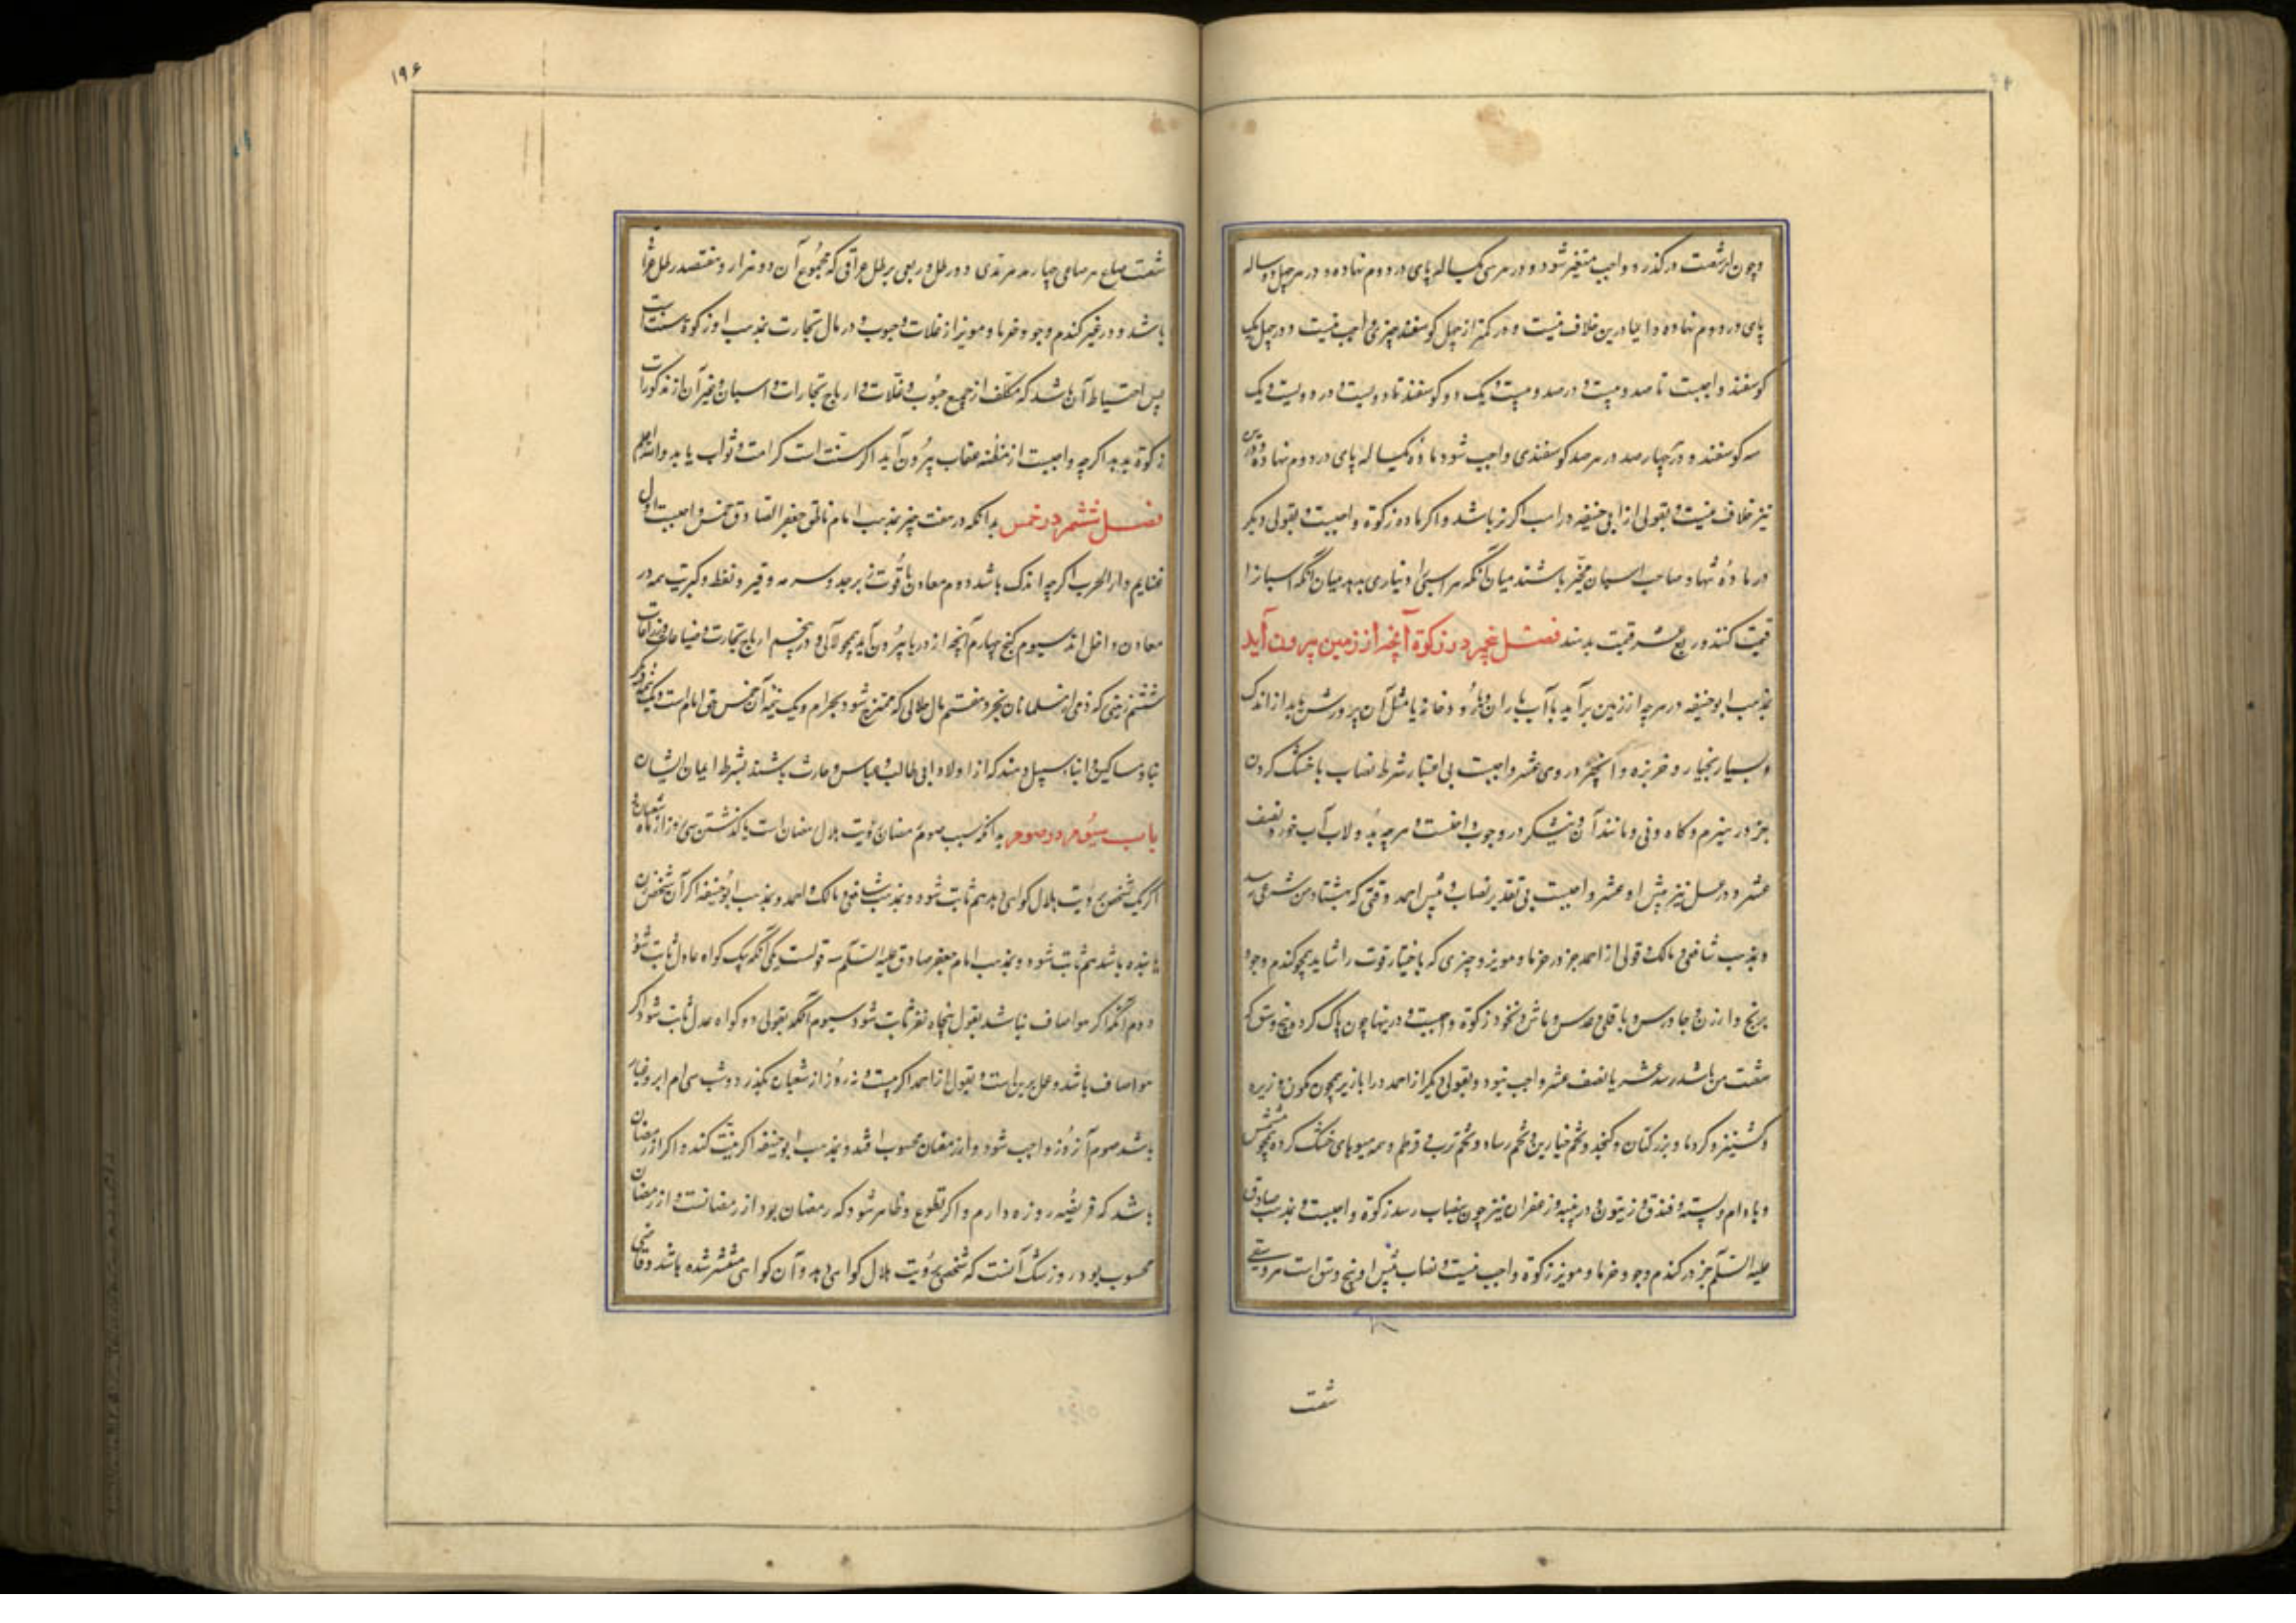 و چون از شصت درگذرد واجب متغیر شود و در هر سی یکساله پای در دوم نهاده و در هر چهل دوساله
پای در دوم نهاده و اینجا درین خلاف نیست و در کمتر از چهل گوسفند چیزی واجب نیست و در چهل یک
گوسفند واجبست تا صد و بیست و در صد و بیست و یک دو گوسفند تا دویست و در دویست و یک
سه گوسفند و در چهارصد در هر صد گوسفندی واجب شود ماده یکساله پای در دوم نهاده و درین
نیز خلاف نیست و بقولی از ابی حنیفه در اسب اگر نر باشد و اگر ماده زکوة واجبست و بقولی دیگر
در ماده تنها و صاحب اسبان مخیر باشند میان آنکه هر اسبی را دیناری بدهد میان آنکه اسبان را
قیمت کنند و ربع عشر قیمت بدهند فصل پنجم در زکوة آنچه از زمین بیرون آید
بمذهب ابو حنیفه در هرچه از زمین برآید بآب باران و رود و خانه یا مثل آن پرورش یابد از اندک
و بسیار بخیار و خربزه و در وی عشر واجبست بی اعتبار شرط نصاب یا خشک کردن
جز در هیزم و کاه و نی و مانند آن و نیشکر در وجوب داخلست و هرچه بدولاب آب خورد نصف
عشر و در عسل نیز پیش او عشر واجبست بی تقدیر نصاب و پیش احمد وقتی که بهشتاد من شرعی رسد
و بمذهب شافعی و مالک و قولی از احمد جز در خرما و مویز و چیزی که باختیار قوت را شاید همچو گندم و جو و
برنج و ارزن و جاورس و باقلی و عدس و ماش و نخود زکوة واجبست و درینها چون پاک کرد و پنج وسق که
من باشد رسد عشر یا نصف عشر واجب شود و بقولی دیگر از احمد در ابازیر همچون کمون و زیره
و کشنیز و کرویا و بزر کتان و کنجد و تخم خیارین و تخم رساد و تخم ترب و قرطم و همه میوهای خشک کرده همچو مشمش
و بادام و پسته و فندق و زیتون و در پنبه و زعفران نیز چون بنصاب رسد زکوة واجبست و بمذهب صادق
علیه السلام جز در گندم و جو و خرما و مویز زکوة واجب نیست و نصاب پیش او پنج وسق است هر وسقی
شصت
۱۹۶
شصت صاع هر صاعی چهار مد هر مدی دو رطل و ربعی برطل عراقی که مجموع آن دو هزار و هفتصد رطل عراقی
باشد و در غیر گندم و جو و خرما و مویز از غلات و حبوب و در مال تجارت بمذهب او زکوة سنت است
پس احتیاط آن باشد که مکلف از جمیع حبوب و غلات و ارباح تجارات و اسبان و غیر آن از مذکورات
زکوة بدهد اگرچه واجبست از مظنه عقاب بیرون آید اگر سنت است کرامت و ثواب یابد والله اعلم
فصل ششم در خمس بدانکه در هفت چیز بمذهب امام ناطق جعفر الصادق خمس واجبست اول
غنایم دار الحرب اگرچه اندک باشد دوم معادن یاقوت زبرجد و سرمه و قیر و نفط و کبریت همه در
معادن داخل اند سیوم گنج چهارم آنچه از دریا بیرون آید همچو لآلی و در پنجم ارباح تجارت و ضیاعات و
ششم زمینی که ذمی از مسلمانان بخرد هفتم مال حلالی که ممتزج شود بحرام و یک نیمه آن خمس حق امام است و یک نیمه دیگر
یتامی و مساکین و ابناء سبیل دهند که از اولاد ابی طالب و عباس و حارث باشند بشرط ایمان ایشان
باب سیوم در صوم بدانکه سبب صوم رمضان رویت هلال رمضان است یا گذشتن سی روز از ماه شعبان و
اگر یک شخص برویت هلال گواهی دهد هم ثابت شود و بمذهب شافعی و مالک و احمد و بمذهب ابوحنیفه اگر آن شخص زن
یا بنده باشد هم ثابت شود و بمذهب امام جعفر صادق علیه السلم سه قولست یکی آنکه بیک گواه عادل ثابت شود
دوم آنکه اگر هوا صاف نباشد بقول پنجاه نفر ثابت شود سیوم آنکه بقولی دو گواه عدل ثابت شود اگر
هوا صاف باشد و عمل برین است و بقولی از احمد اگر بیست و نه روز از شعبان بگذرد و شب سی ام ابر و غبار
باشد صوم آن روز واجب شود و از رمضان محسوب افتد و بمذهب ابوحنیفه اگر نیت کند و اگر از رمضان
باشد که فریضه روزه دارم و اگر تطوع و ظاهر شود که رمضان بود از رمضانست و از رمضان
محسوب بود و روز شک آنست که شخصی برویت هلال گواهی دهد و آن گواهی منتشر شده باشد و قاضی